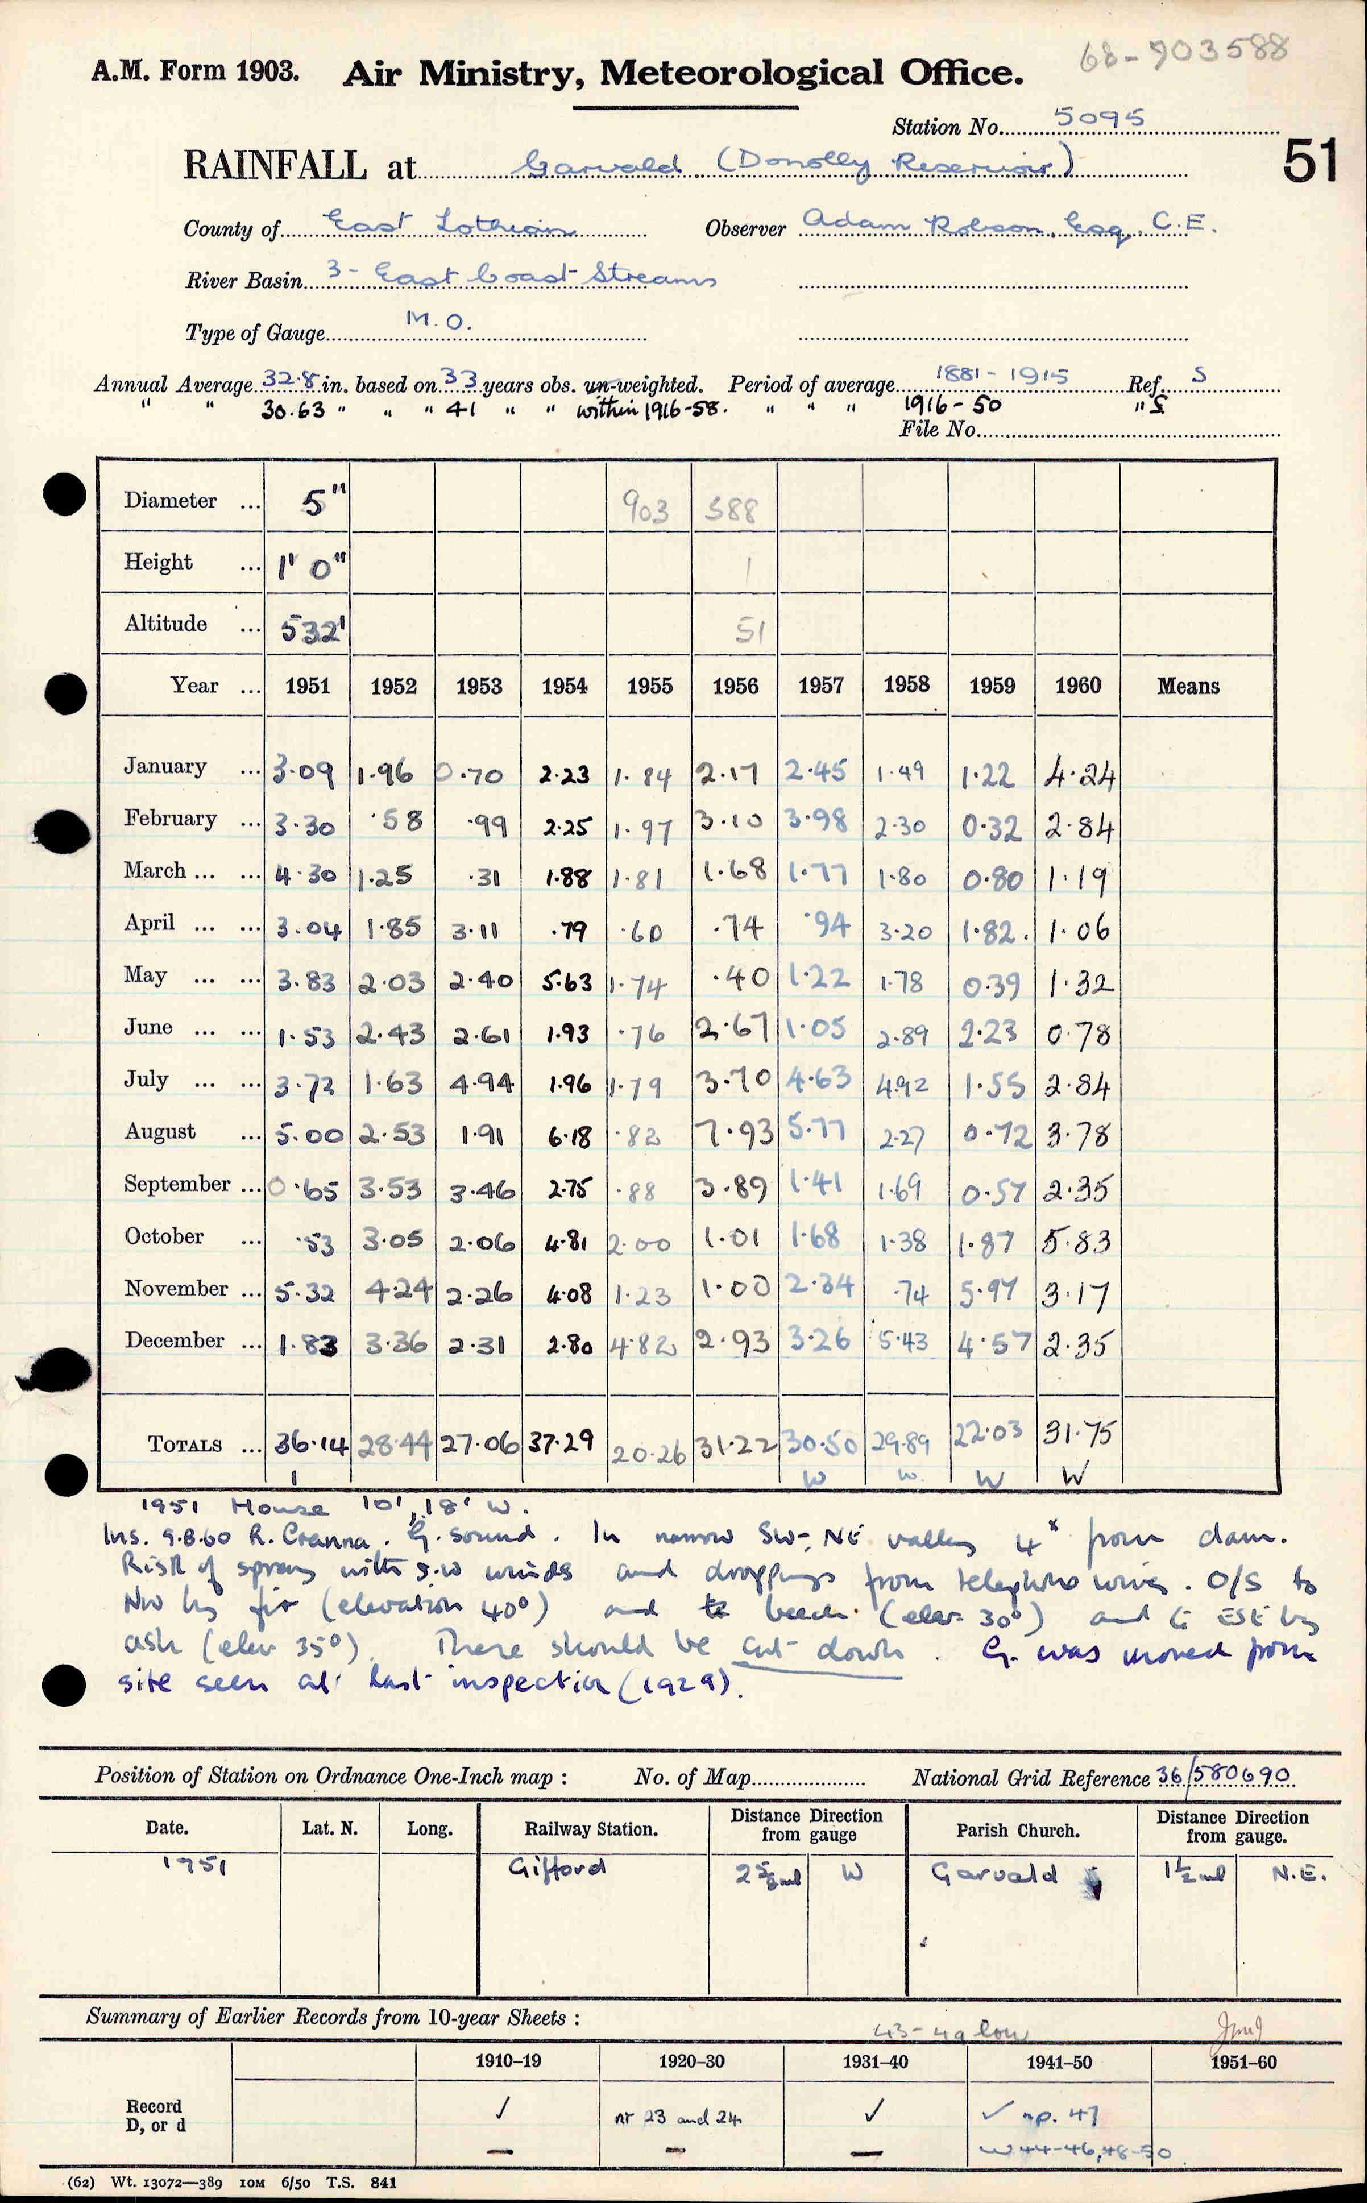 68-903588
A.M. Form 1903. Air Ministry, Meteorological Office.
Station No. 5095
RAINFALL at Garvald (Donolly Reservoir) 51
County of East Lothian Observer Adam Robson, Esq. C.E.
River Basin 3 - East Coast Streams
Type of Gauge M.O.
Annual Average 32.8 in. based on 33 years obs. un-weighted. Period of average 1881-1915 Ref. S
" " 30.63 " " " 41 " " within 1916-58. " " " 1916-50 " S
File No.
Diameter ... 5" 903 588
Height ... 1' 0" 1
Altitude ... 532' 51
Year ... 1951 1952 1953 1954 1955 1956 1957 1958 1959 1960 Means
January ... 3.09 1.96 0.70 2.23 1.84 2.17 2.45 1.49 1.22 4.24
February ... 3.30 .58 .99 2.25 1.97 3.10 3.98 2.30 0.32 2.84
March ... ... 4.30 1.25 .31 1.88 1.81 1.68 1.77 1.80 0.80 1.19
April ... ... 3.04 1.85 3.11 .79 .60 .74 .94 3.20 1.82. 1.06
May ... ... 3.83 2.03 2.40 5.63 1.74 .40 1.22 1.78 0.39 1.32
June ... ... 1.53 2.43 2.61 1.93 .76 2.67 1.05 2.89 2.23 0.78
July ... ... 3.72 1.63 4.94 1.96 1.79 3.70 4.63 4.92 1.55 2.84
August ... 5.00 2.53 1.91 6.18 .82 7.93 5.77 2.27 0.72 3.78
September ... 0.65 3.53 3.46 2.75 .88 3.89 1.41 1.69 0.57 2.35
October ... .53 3.05 2.06 4.81 2.00 1.01 1.68 1.38 1.87 5.83
November ... 5.32 4.24 2.26 4.08 1.23 1.00 2.34 .74 5.97 3.17
December ... 1.83 3.36 2.31 2.80 4.82 2.93 3.26 5.43 4.57 2.35
TOTALS ... 36.14 28.44 27.06 37.29 20.26 31.22 30.50 29.89 22.03 31.75
1 W W W W
1951 House 10', 18' W.
Ins. 9.8.60 R. Cranna. G. sound. In narrow SW-NE valley 4x from dam.
Risk of spray with S.W winds and droppings from telephone wires. O/S to
NW by fir (elevation 40°) and to beech (elev. 30°) and E ESE by
ash (elev 35°). These should be cut down. G. was moved from
site seen at last inspection (1929).
Position of Station on Ordnance One-Inch map : No. of Map National Grid Reference 36/580690
Date. Lat. N. Long. Railway Station. Distance Direction from gauge Parish Church. Distance Direction from gauge.
1951 Gifford 2 5/8 ml W Garvald 1 1/2 ml N.E.
Summary of Earlier Records from 10-year Sheets :
43-49 low
1910–19 1920–30 1931–40 1941–50 1951–60
Record ✓ nr 23 and 24 ✓ ✓ np. 47
D, or d – – – w 44-46, 48-50
(62) Wt. 13072—389 10M 6/50 T.S. 841